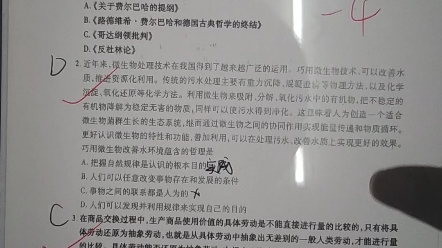 A.《关于费尔巴哈的提纲》
B.《路德维希·费尔巴哈和德国古典哲学的终结》
C.《哥达纲领批判》
D.《反杜林论》
-4
D
2. 近年来,微生物处理技术在我国得到了越来越广泛的运用。巧用微生物技术,可以改善水
质,推进资源化利用。传统的污水处理主要有重力沉降、混凝澄清等物理方法,以及化学
沉淀、氧化还原等化学方法。利用微生物来吸附、分解、氧化污水中的有机物,把不稳定的
有机物降解为稳定无害的物质,同样可以使污水得到净化。这意味着人为创造一个适合
微生物菌群生长的生态系统,继而通过微生物之间的协同作用实现能量传递和物质循环。
更好认识微生物的特性和功能,善加利用,可以在处理污水、改善水质上实现更好的效果。
巧用微生物改善水环境蕴含的哲理是
A. 把握自然规律是认识的根本目的 实践
B. 人们可以任意改变事物存在和发展的条件
C. 事物之间的联系都是人为的
D. 人们可以发现并利用规律来实现自己的目的
C
3. 在商品交换过程中,生产商品使用价值的具体劳动是不能直接进行量的比较的,只有将具
体劳动还原为抽象劳动,也就是从具体劳动中抽象出无差别的一般人类劳动,才能进行量
的比较。